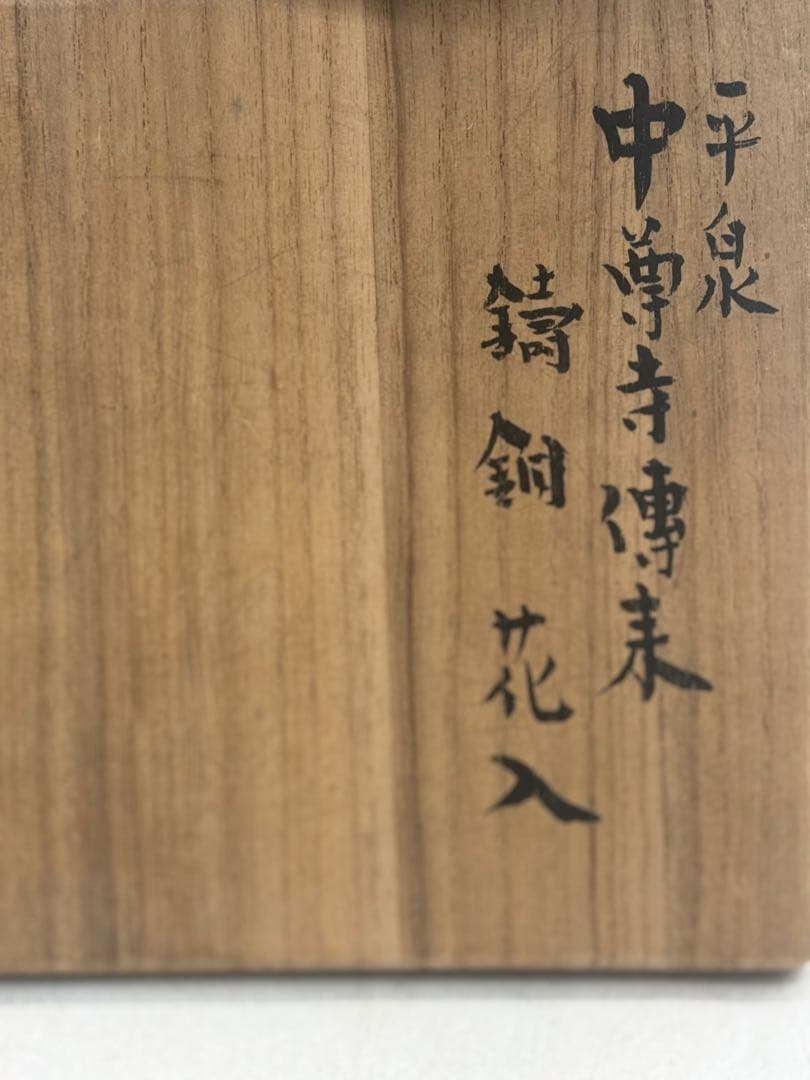 平泉
中尊寺傳来
鑄銅花入